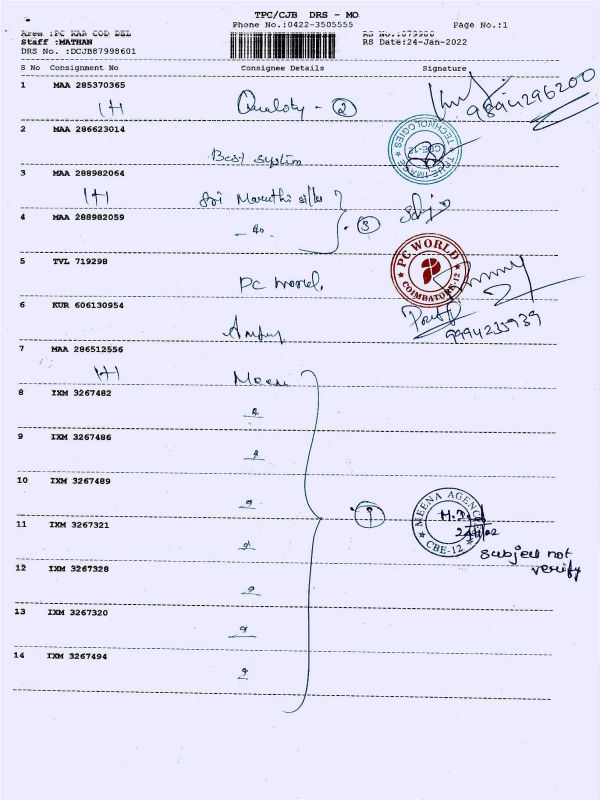 TPC/CJB DRS - MO
Phone No.:0422-3505555 Page No.:1
Area :PC KAR COD DEL
Staff :MATHAN RS Date:24-Jan-2022
DRS No. :DCJB87998601
S No Consignment No Consignee Details Signature
1 MAA 285370365
1+1 Quality - 2 9894296200
2 MAA 286623014
TRUE IMAGE TECHNOLOGIES CBE-12
Best system
3 MAA 288982064
1+1 Sri Maruthi
4 MAA 288982059
- do - 3
5 TVL 719298
PC World. PC WORLD COIMBATORE-12
6 KUR 606130954
9994235939
7 MAA 286512556
1+1 Meena
8 IXM 3267482
9 IXM 3267486
10 IXM 3267489
1 MEENA AGENC CBE-12
11 IXM 3267321
subject not
verify
12 IXM 3267328
13 IXM 3267320
14 IXM 3267494